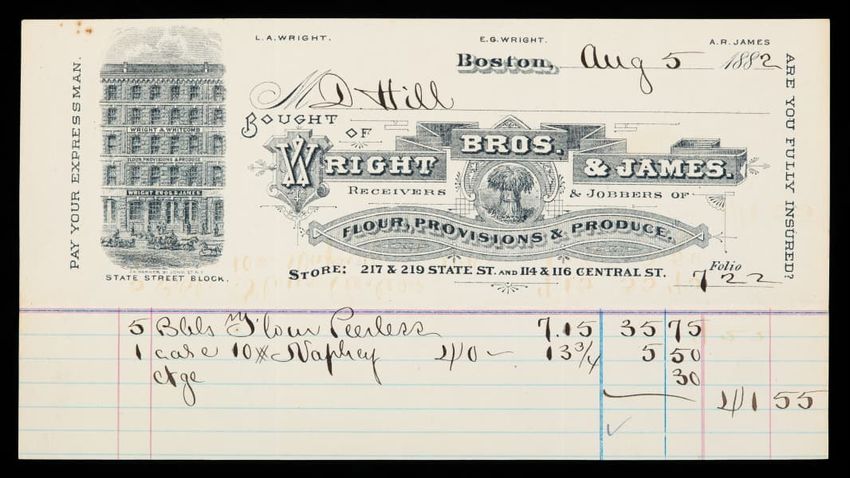 L.A. WRIGHT. E.G. WRIGHT. A.R. JAMES
Boston, Aug 5 1882
M D. Hill
BOUGHT OF
WRIGHT BROS. & JAMES.
RECEIVERS & JOBBERS OF
FLOUR, PROVISIONS & PRODUCE.
STORE: 217 & 219 STATE ST. AND 114 & 116 CENTRAL ST.
Folio 722
PAY YOUR EXPRESSMAN.
ARE YOU FULLY INSURED?
WRIGHT & WHITCOMB
FLOUR PROVISIONS & PRODUCE
WRIGHT BROS & JAMES
STATE STREET BLOCK.
5 Bbls Flour Peerless 7.15 35 75
1 case 10# Naphey 40 – 13 3/4 5 50
ctge 30
41 55